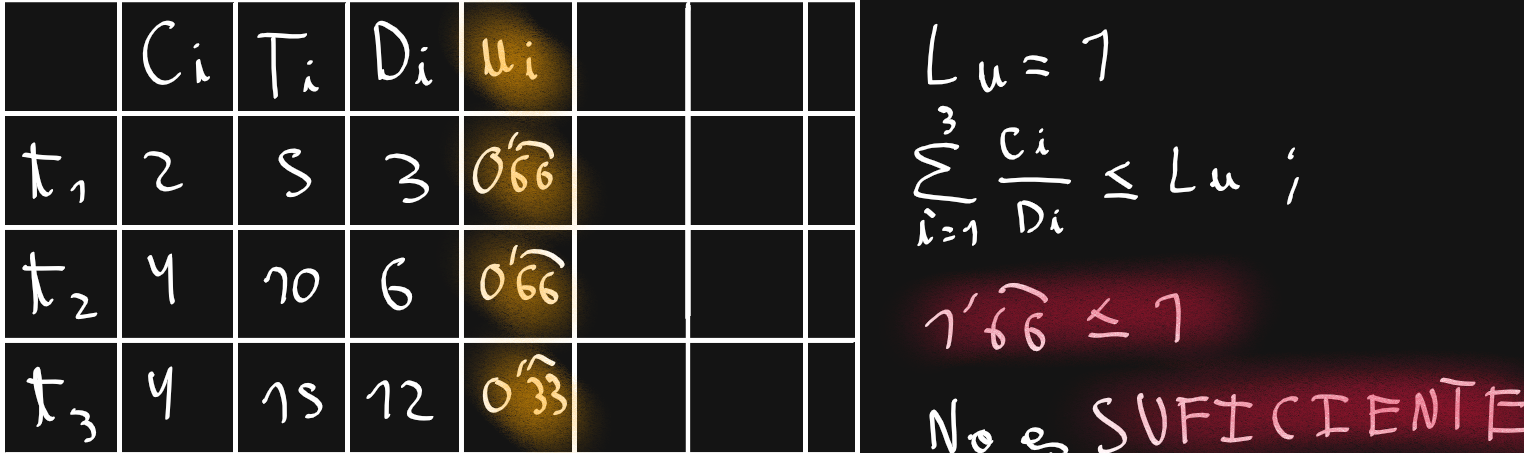 Ci Ti Di ui
t1 2 5 3 0'66
t2 4 10 6 0'66
t3 4 15 12 0'33
Lu = 1
3
∑ Ci/Di ≤ Lu ;
i=1
1'66 ≤ 1
No es SUFICIENTE